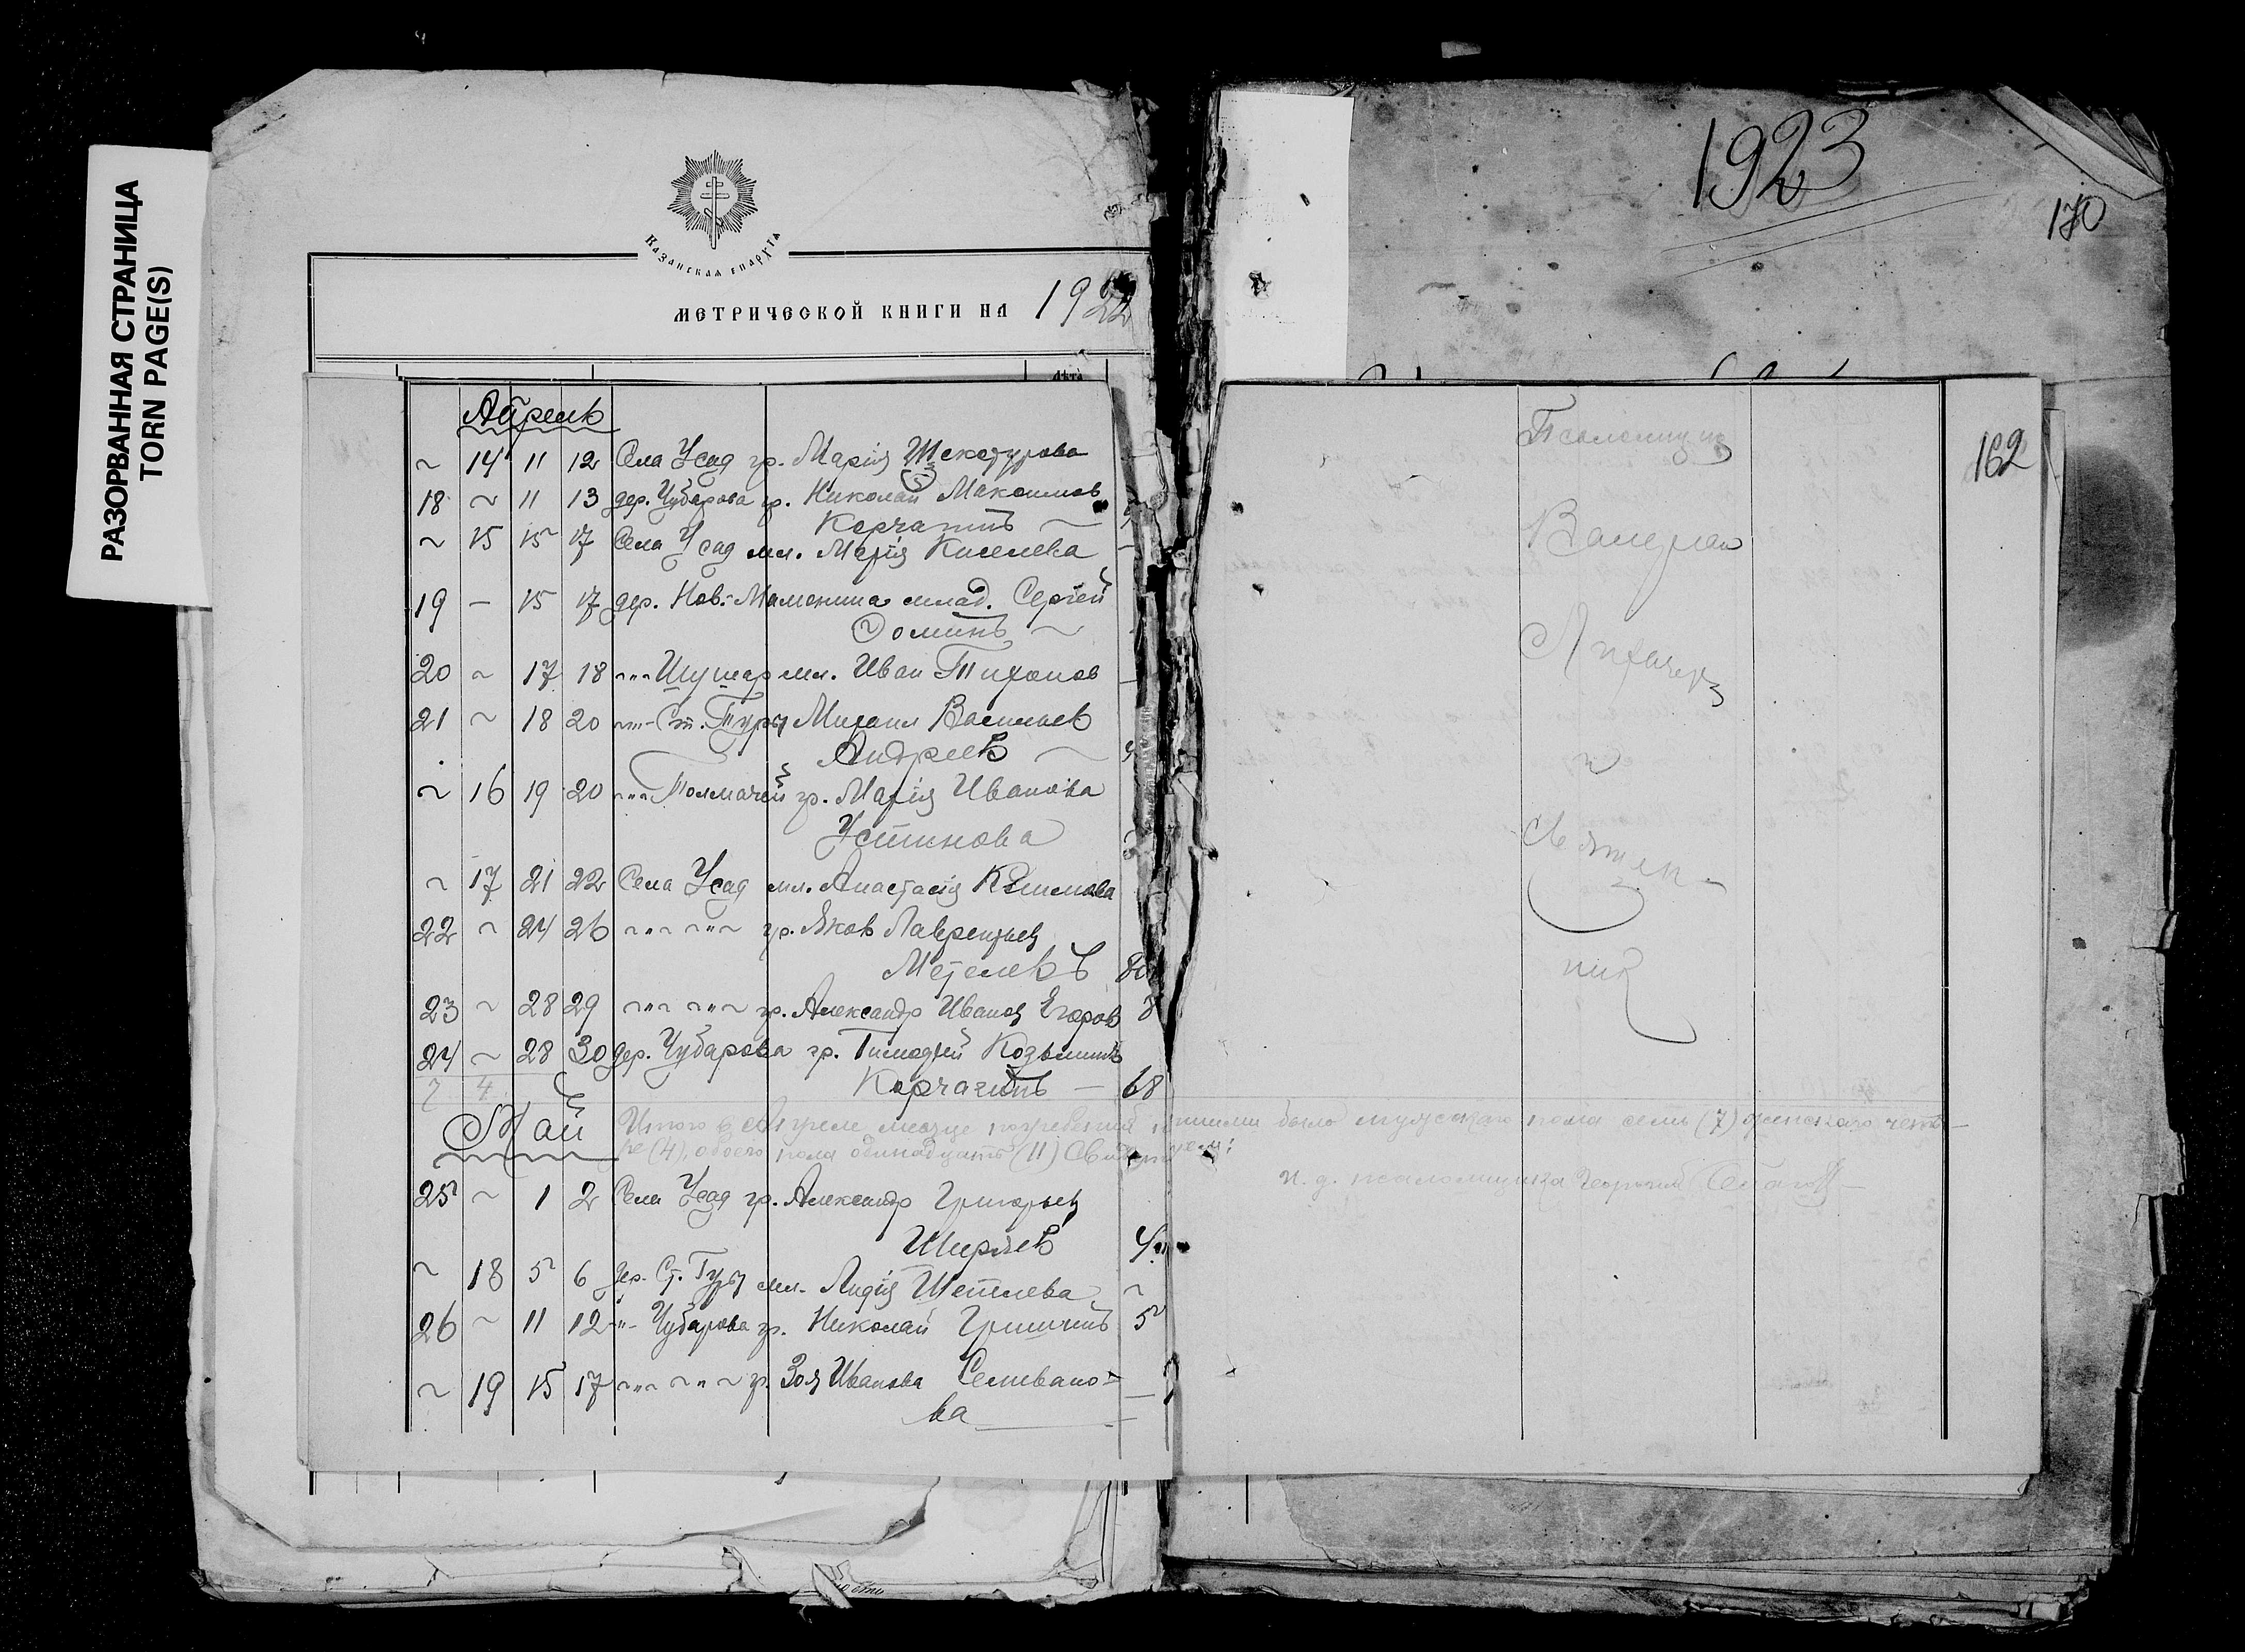 РАЗОРВАННАЯ СТРАНИЦА
TORN PAGE(S)
КАЗАНСКАЯ ЕПАРХІА
МЕТРИЧЕСКОЙ КНИГИ НА 1922
лѣта
Апрель
~ 14 11 12 Села Усад гр. Марія Шекатурова
18 ~ 11 13 дер. Чубарова гр. Николай Максимов
Корчагинъ ~
~ 15 15 17 Села Усад мл. Марія Киселева
19 – 15 17 дер. Нов. Мамонина млад. Сергѣй
Ѳоминъ ~
20 ~ 17 18 ~"~ Шушар мл. Иван Тихонов
21 ~ 18 20 ~"~ Ст. Туры Михаил Васильев
Андреевъ ~
~ 16 19 20 ~"~ Толмачей гр. Марія Иванова
Устинова
~ 17 21 22 Села Усад мл. Анастасія Климова
22 ~ 24 26 ~"~ ~"~ гр. Яков Лаврентьев
Метелевъ 80
23 ~ 28 29 ~"~ ~"~ гр. Александр Иванов Егоров 8
24 ~ 28 30 дер. Чубарова гр. Тимофей Козьминъ
Корчагинъ — 68
7 4
Май
Итого в Апреле месяце погребений было мужского пола семь (7) женского четы-
ре (4), обоего пола одинадцать (11)
и. д. псаломщика Георгий
25 ~ 1 2 Села Усад гр. Александр Григорьев
Ширяевъ
~ 18 5 6 дер. Ст. Туры мл. Лидія Шетнева ~
26 ~ 11 12 -"- Чубарова гр. Николай Гришинъ 5
~ 19 15 17 ~"~ ~"~ гр. Зоя Иванова Селивано=
ва
1923
170
162
Псаломщик
Валериан
Лихачев
и
Священ-
ник